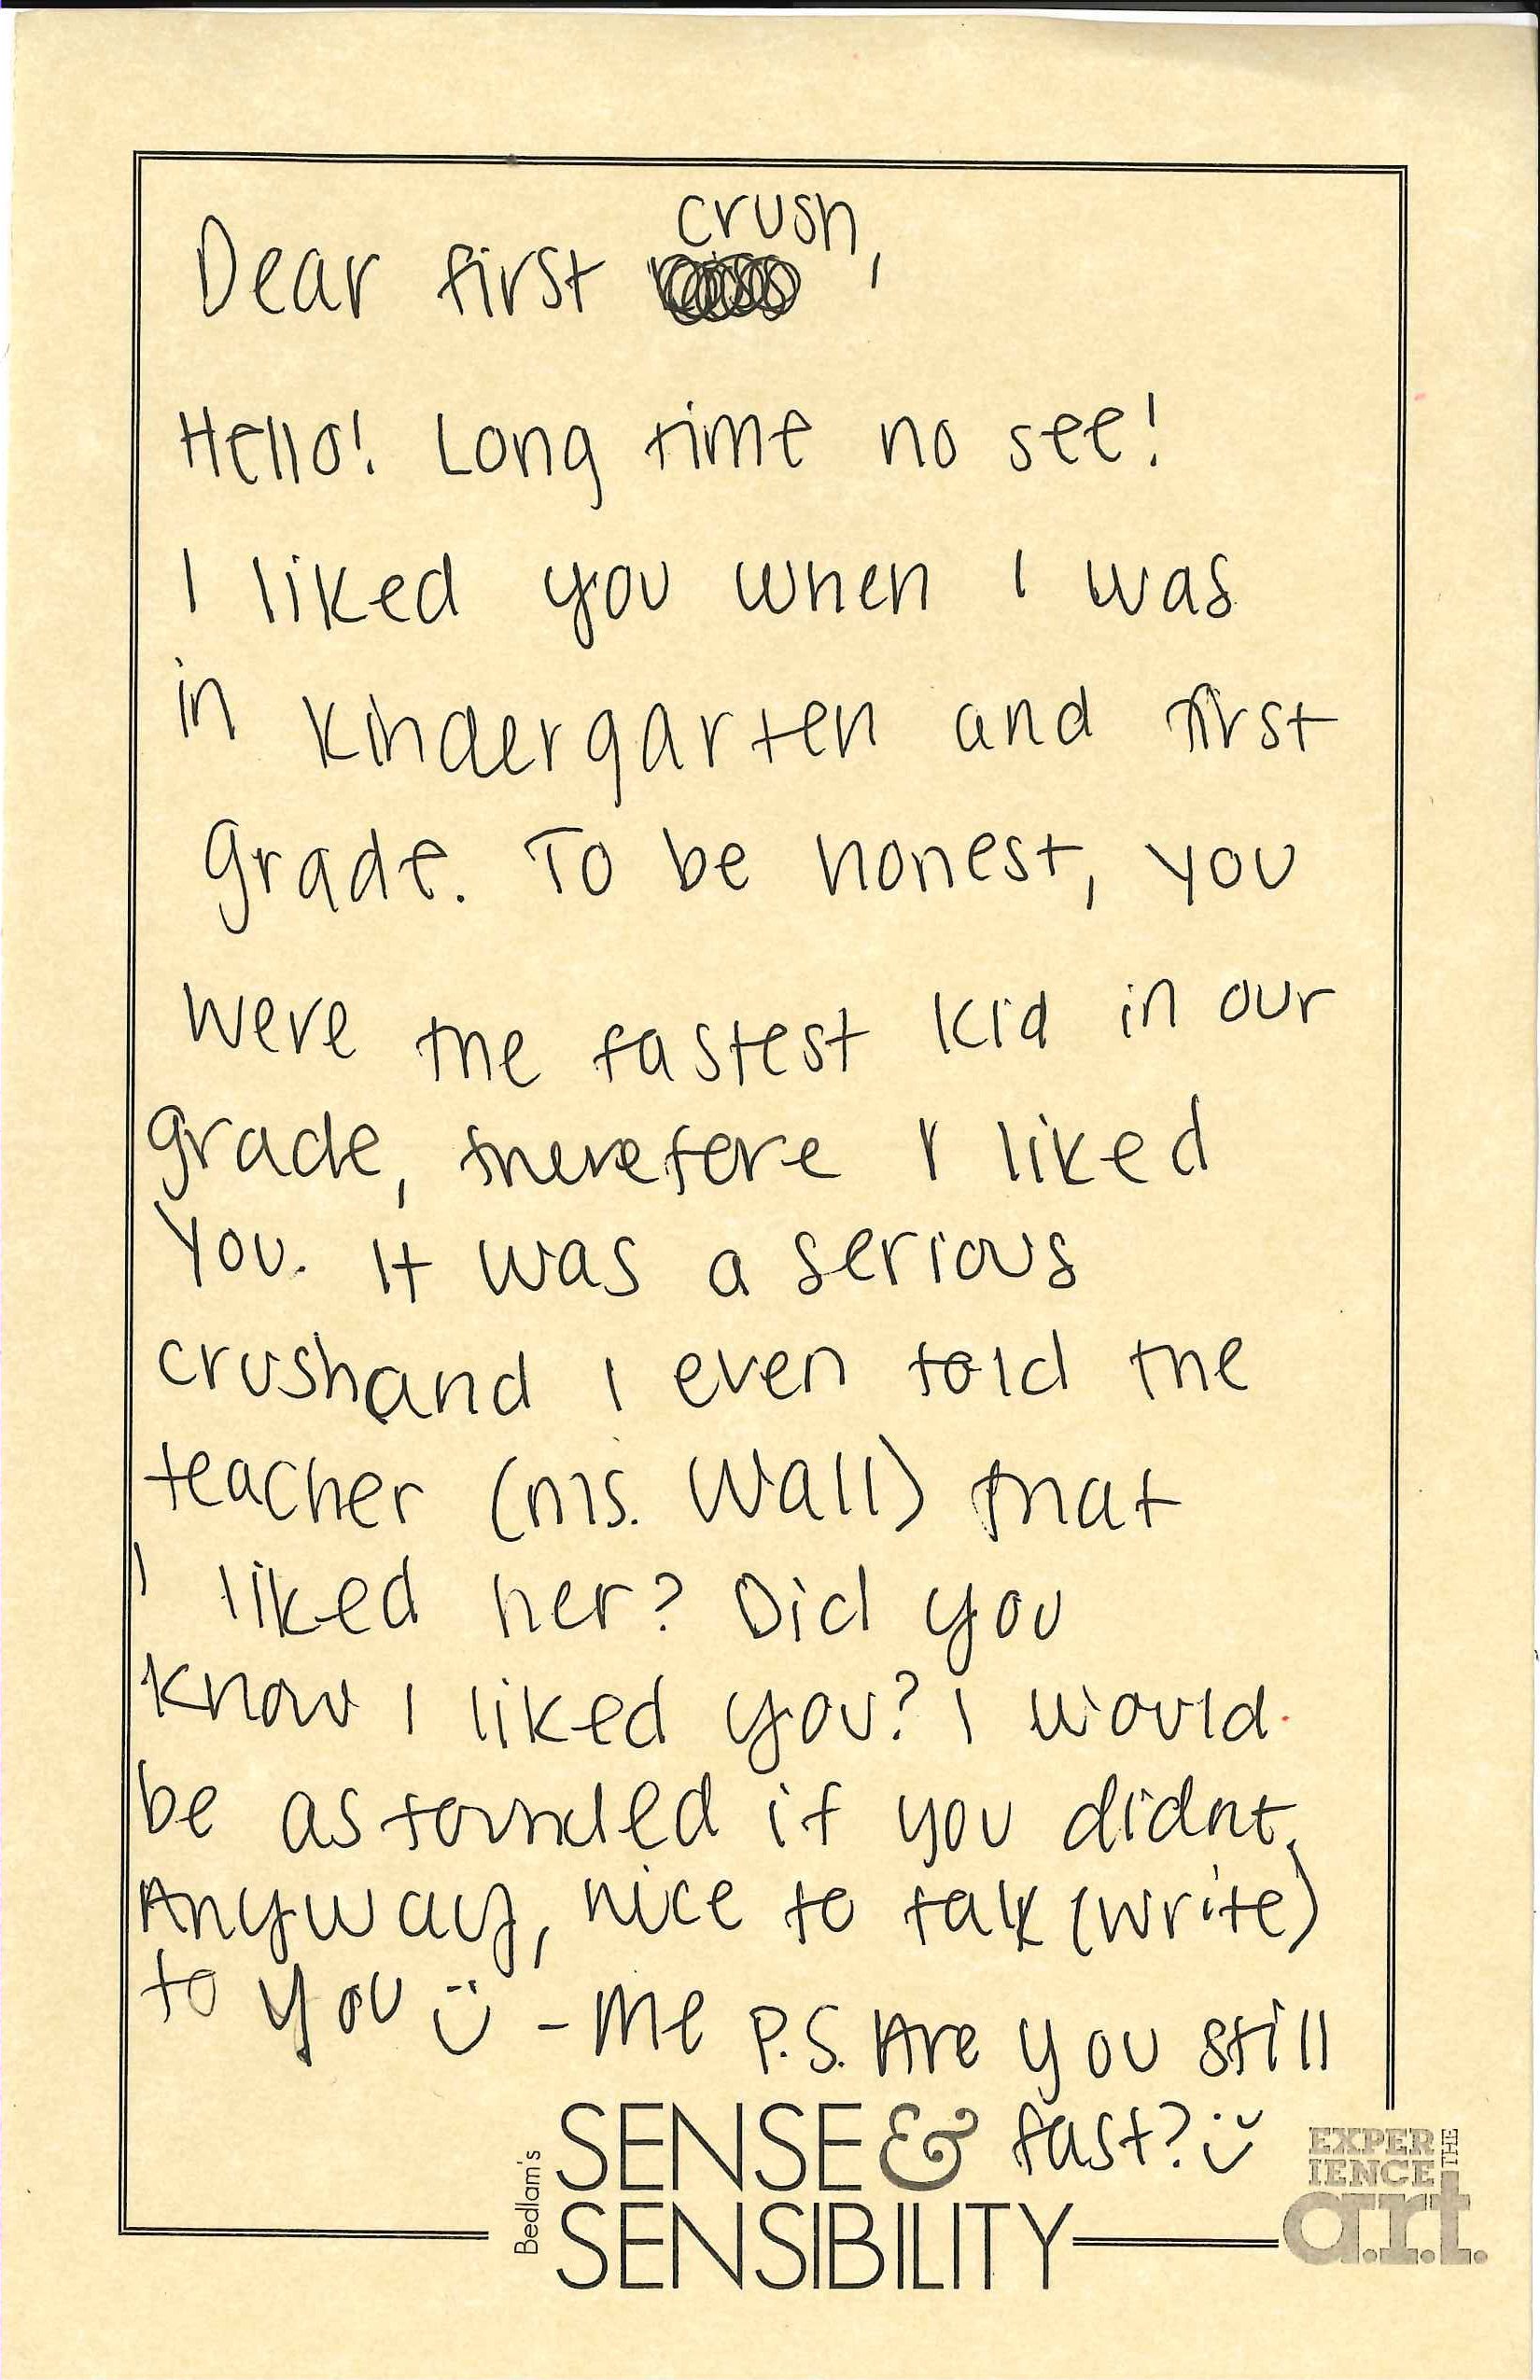 Dear first crush,
Hello! Long time no see!
I liked you when I was
in kindergarten and first
grade. To be honest, you
were the fastest kid in our
grade, therefore I liked
you. It was a serious
crush and I even told the
teacher (Ms. Wall) that
I liked her? Did you
know I liked you? I would
be astounded if you didnt.
Anyway, nice to talk (write)
to you :) - Me P.S. Are you still
fast? :)
Bedlam's
SENSE &
SENSIBILITY
EXPER
IENCE
THE
a.r.t.